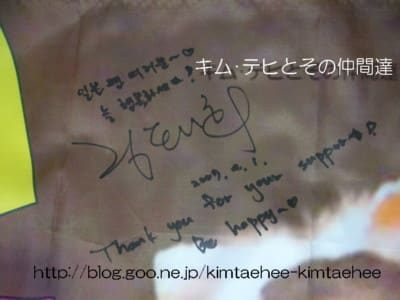 キム・テヒとその仲間達
일본 팬 여러분~♡
늘 행복하세요!
김태희
2007. 2. 1.
Thank you for your support!
Be happy~♡
http://blog.goo.ne.jp/kimtaehee-kimtaehee